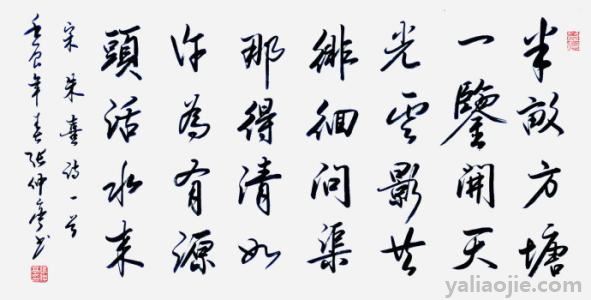 半畝方塘
一鑒開天
光雲影共
徘徊問渠
那得清如
許為有源
頭活水来
宋朱熹詩一首
壬寅年春張仲亭书
yaliaojie.com